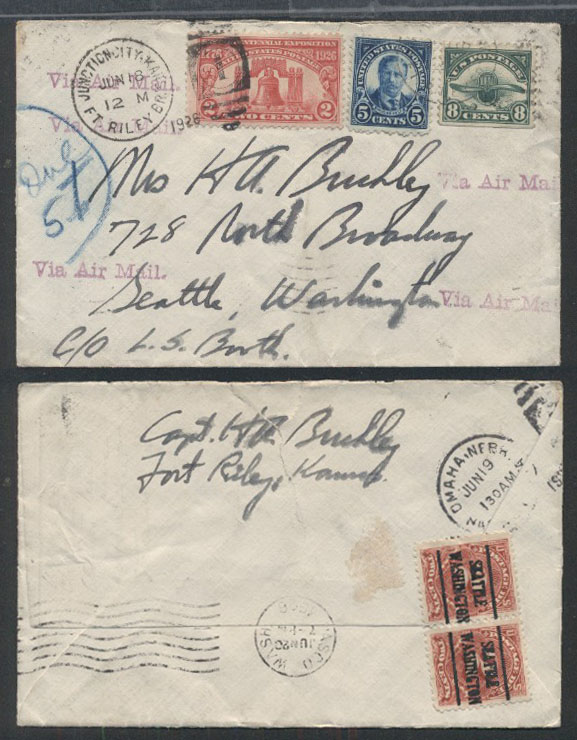 JUNCTION CITY, KANS.
JUN 18
12 M
FT. RILEY BR.
1926
1776 1926
CENTENNIAL EXPOSITION
UNITED STATES POSTAGE
2 2
TWO CENTS
UNITED STATES POSTAGE
5 5
CENTS
U.S. POSTAGE
8 8
CENTS
Via Air Mail.
Via Air Mail.
Via Air Mai
Via Air Mail.
Via Air Mai
Due
5¢
Mrs H A Buckley
728 North Broadway
Seattle, Washington
C/O L.S. Booth.
Capt. H A Buckley
Fort Riley, Kansas.
OMAHA, NEBR.
JUN 19
1 30 AM
SEATTLE
WASHINGTON
SEATTLE
WASHINGTON
PASCO WASH
JUN 20